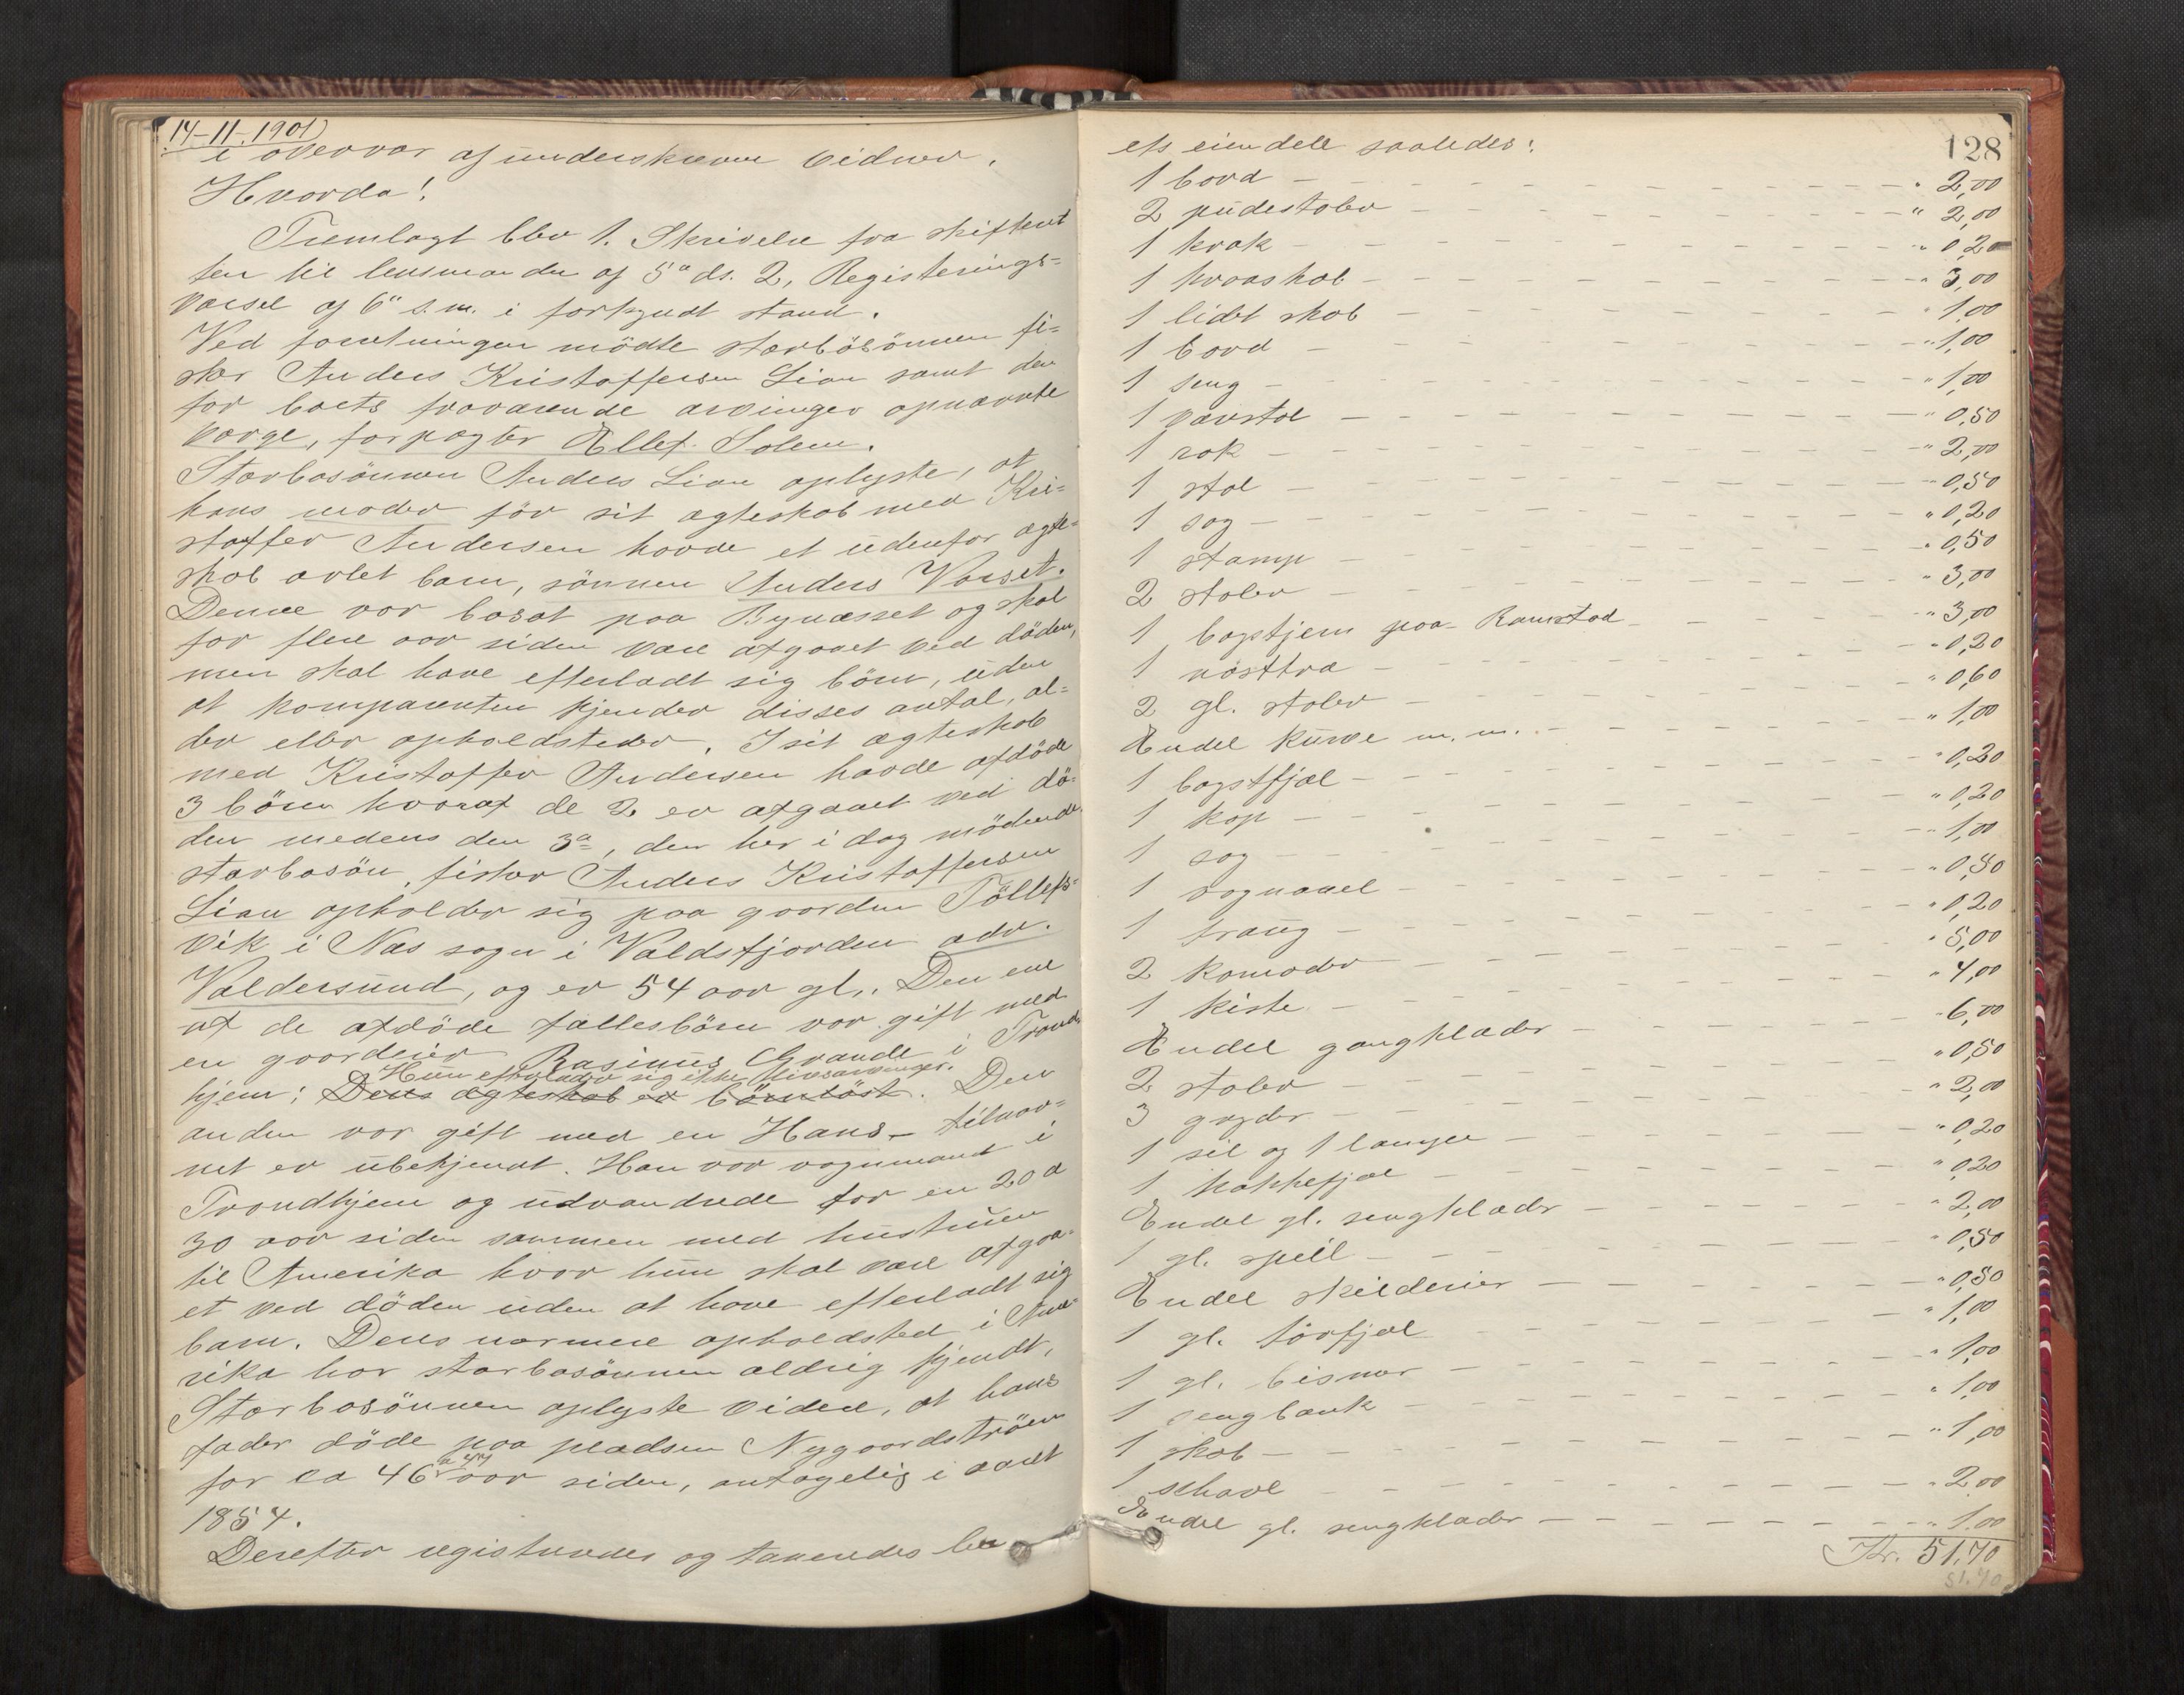 14-11-1901)
i overvær af underskrevne vidner.
Hvorda!
Fremlagt blev 1. Skrivelse fra skifteret
ten til lensmanden af 5a ds. 2, Registerings-
varsel af 6" s.m. i forkyndt stand.
Ved forretningen mödte stærbösönnen fi-
sker Anders Kristoffersen Lian samt den
for boets fraværende arvinger opnævnte
værge, forpagter Ellef Solem.
Stærbosönnen Anders Lian oplyste, at
hans moder för sit ægteskab med Kri-
stoffer Andersen havde et udenfor ægte-
skab avlet barn, sönnen Anders Vorset.
Denne var bosat paa Bynæsset og skal
for flere aar siden være afgaaet ved döden,
men skal have efterladt sig börn, uden
at komparenten kjender disses antal, al-
der eller opholdsteder. I sit ægteskab
med Kristoffer Andersen havde afdöde
3 börn hvoraf de 2 er afgaaet ved dö-
den medens den 3a, den her i dag mödende
stærbosön, fisker Anders Kristoffersen
Lian opholder sig paa gaarden Töllefs-
vik i Næs sogn i Valdsfjorden adr.
Valdersund, og er 54 aar gl. Den ene
af de afdöde fællesbörn var gift med
en gaardeier Rasinus Grande i Trond
Hun efterlader sig ikke livsarvinger.
hjem; Dens ægteskab er börnlöst. Den
anden var gift med en Hans – tilnav-
net er ubekjendt. Han var vognmand i
Trondhjem og udvandrede for en 20 a
30 aar siden sammen med hustruen
til Amerika hvor hun skal være afgaa-
et ved döden uden at have efterladt sig
barn. Dens nærmere opholdsted i Ame-
rika har stærbosönnen aldrig kjendt.
Stærbosönnen oplyste videre, at hans
fader döde paa pladsen Nygaardströen
a 47
for ca 46 aar siden, antagelig i aaret
1854.
Derefter registreredes og taxeredes bo
128
ets eiendele saaledes:
1 bord - " 2,00
2 pudestoler - " 2,00
1 krak - " 0,20
1 kraaskab - " 3,00
1 lidet skab - " 1,00
1 bord - " 1,00
1 seng - " 1,00
1 vævstol - " 0,50
1 rok - " 2,00
1 stol - " 0,50
1 sag - " 0,20
1 stamp - " 0,50
2 stoler - " 3,00
1 bagstjern paa Ramstad - " 3,00
1 nösttra - " 0,20
2 gl. stoler - " 0,60
Endel kurve m. m. - " 1,00
1 bagstfjæl - " 0,20
1 kop - " 0,20
1 sag - " 1,00
1 vognaael - " 0,50
1 traug - " 0,20
2 komoder - " 5,00
1 kiste - " 4,00
Endel gangklæder - " 6,00
2 stoler - " 0,50
3 gryder - " 2,00
1 sil og 1 lampe - " 0,20
1 hakkefjæl - " 0,20
Endel gl. sengklæder - " 2,00
1 gl. speil - " 0,50
Endel skilderier - " 0,50
1 gl. förfjæl - " 1,00
1 gl. bismer - " 1,00
1 sengbænk - " 1,00
1 skab - " 1,00
1 schavl - " 2,00
Endel gl. sengklæder - " 1.00
Kr. 51,70
51.70